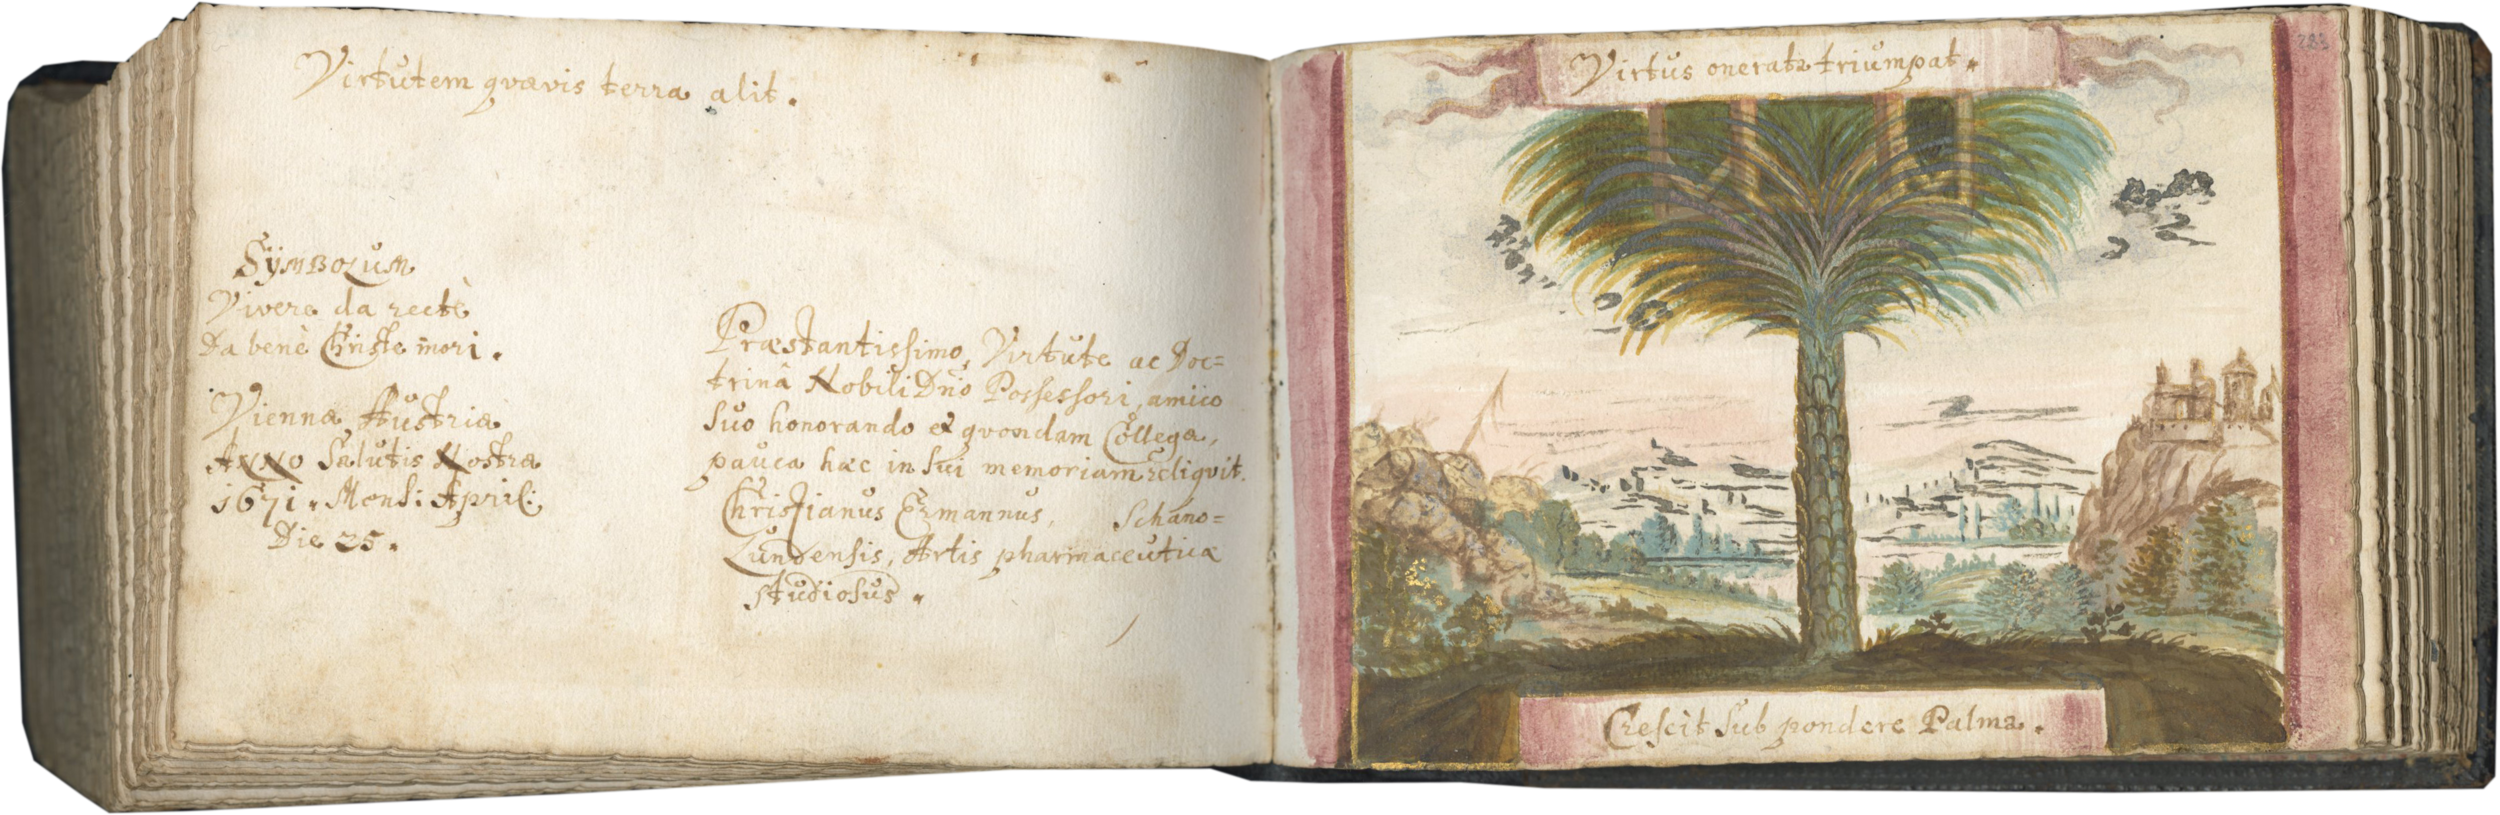 Virtutem qvævis terra alit.
Sÿmbolum
Vivere da rectè
Da benè Christe mori.
Viennæ Austriæ
Anno Salutis Nostræ
1671. Mens: April:
Die 25.
Præstantissimo, Virtute ac Doc=
trinâ Nobili Dn̄o Possessori, amico
suo honorando et qvondam Collegæ,
pauca hæc in sui memoriam reliqvit.
Christianus Ezmannus, Schano=
Lundensis, Artis pharmaceuticæ
studiosus.
Virtus onerata triumpat.
283
Crescit sub pondere Palma.